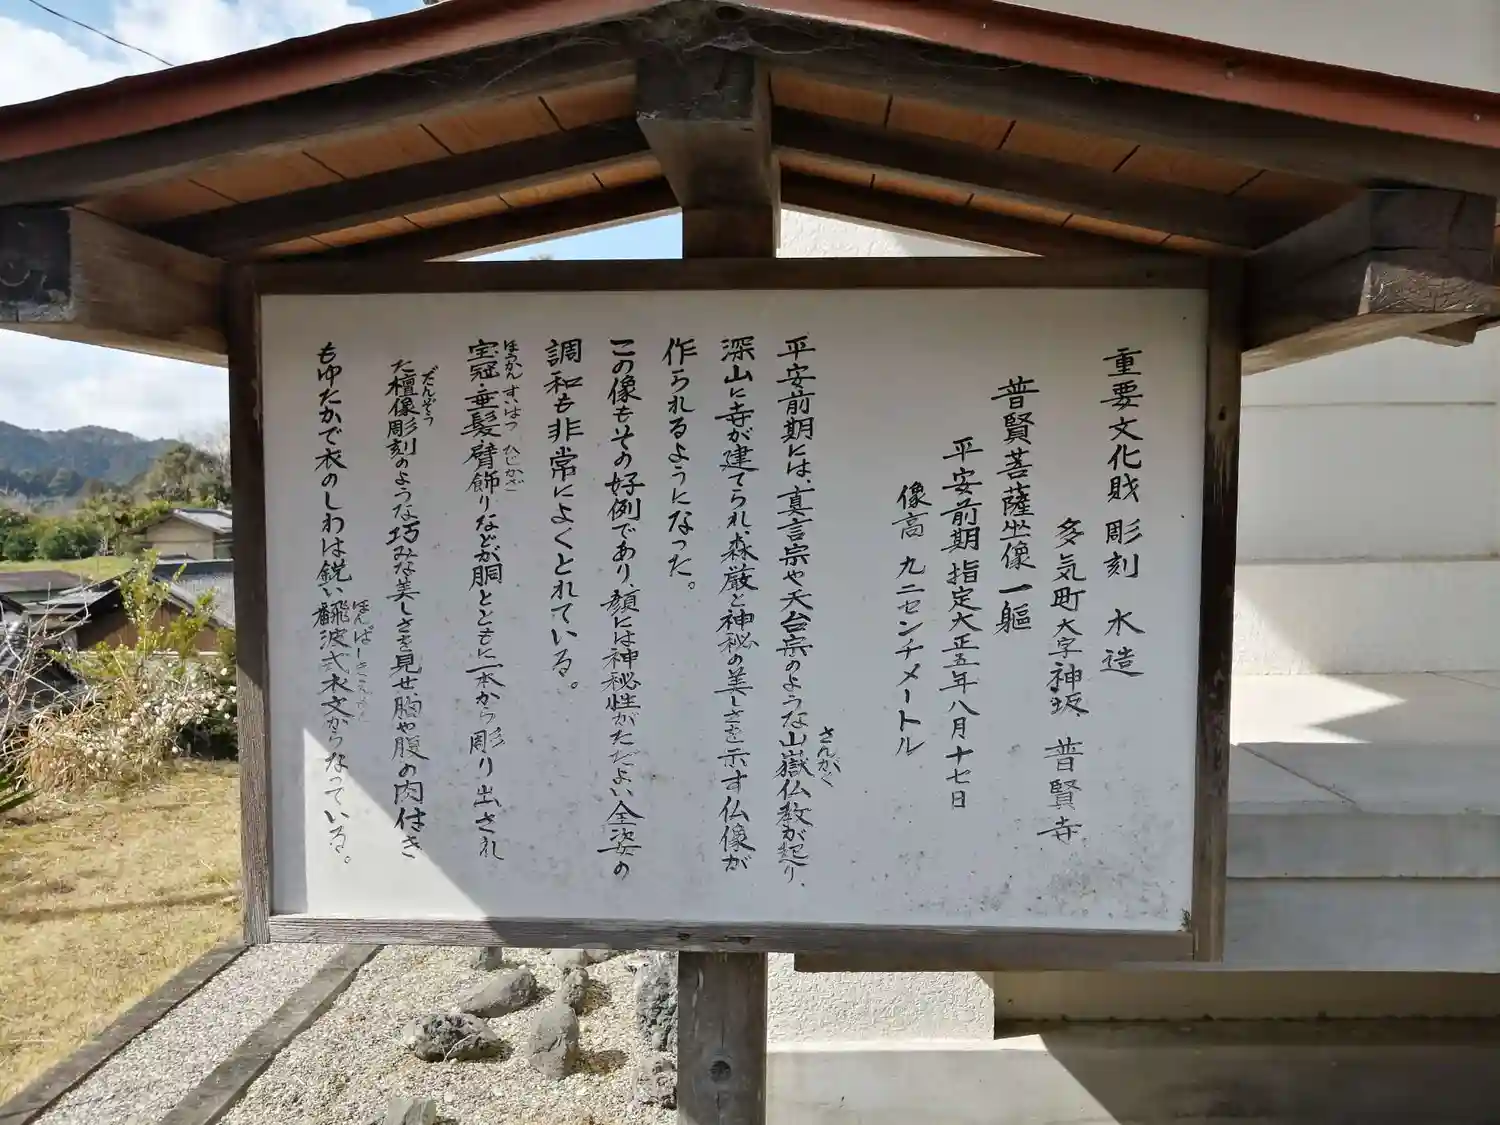 重要文化財 彫刻 木造
多気町大字神坂、普賢寺
普賢菩薩坐像一軀
平安前期指定大正五年八月十七日
像高 九二センチメートル
平安前期には、真言宗や天台宗のような山嶽仏教が起り、
さんがく
深山に寺が建てられ、森厳と神秘の美しさを示す仏像が
作られるようになった。
この像もその好例であり、顔には神秘性がただよい全姿の
調和も非常によくとれている。
宝冠・垂髪・臂飾りなどが胴とともに一本から彫り出され
ほうかん すいはつ ひじかざ
た檀像彫刻のような巧みな美しさを見せ、胸や腹の肉付き
だんぞう
もゆたかで衣のしわは鋭い飜波式衣文からなっている。
ほんぱしきえもん